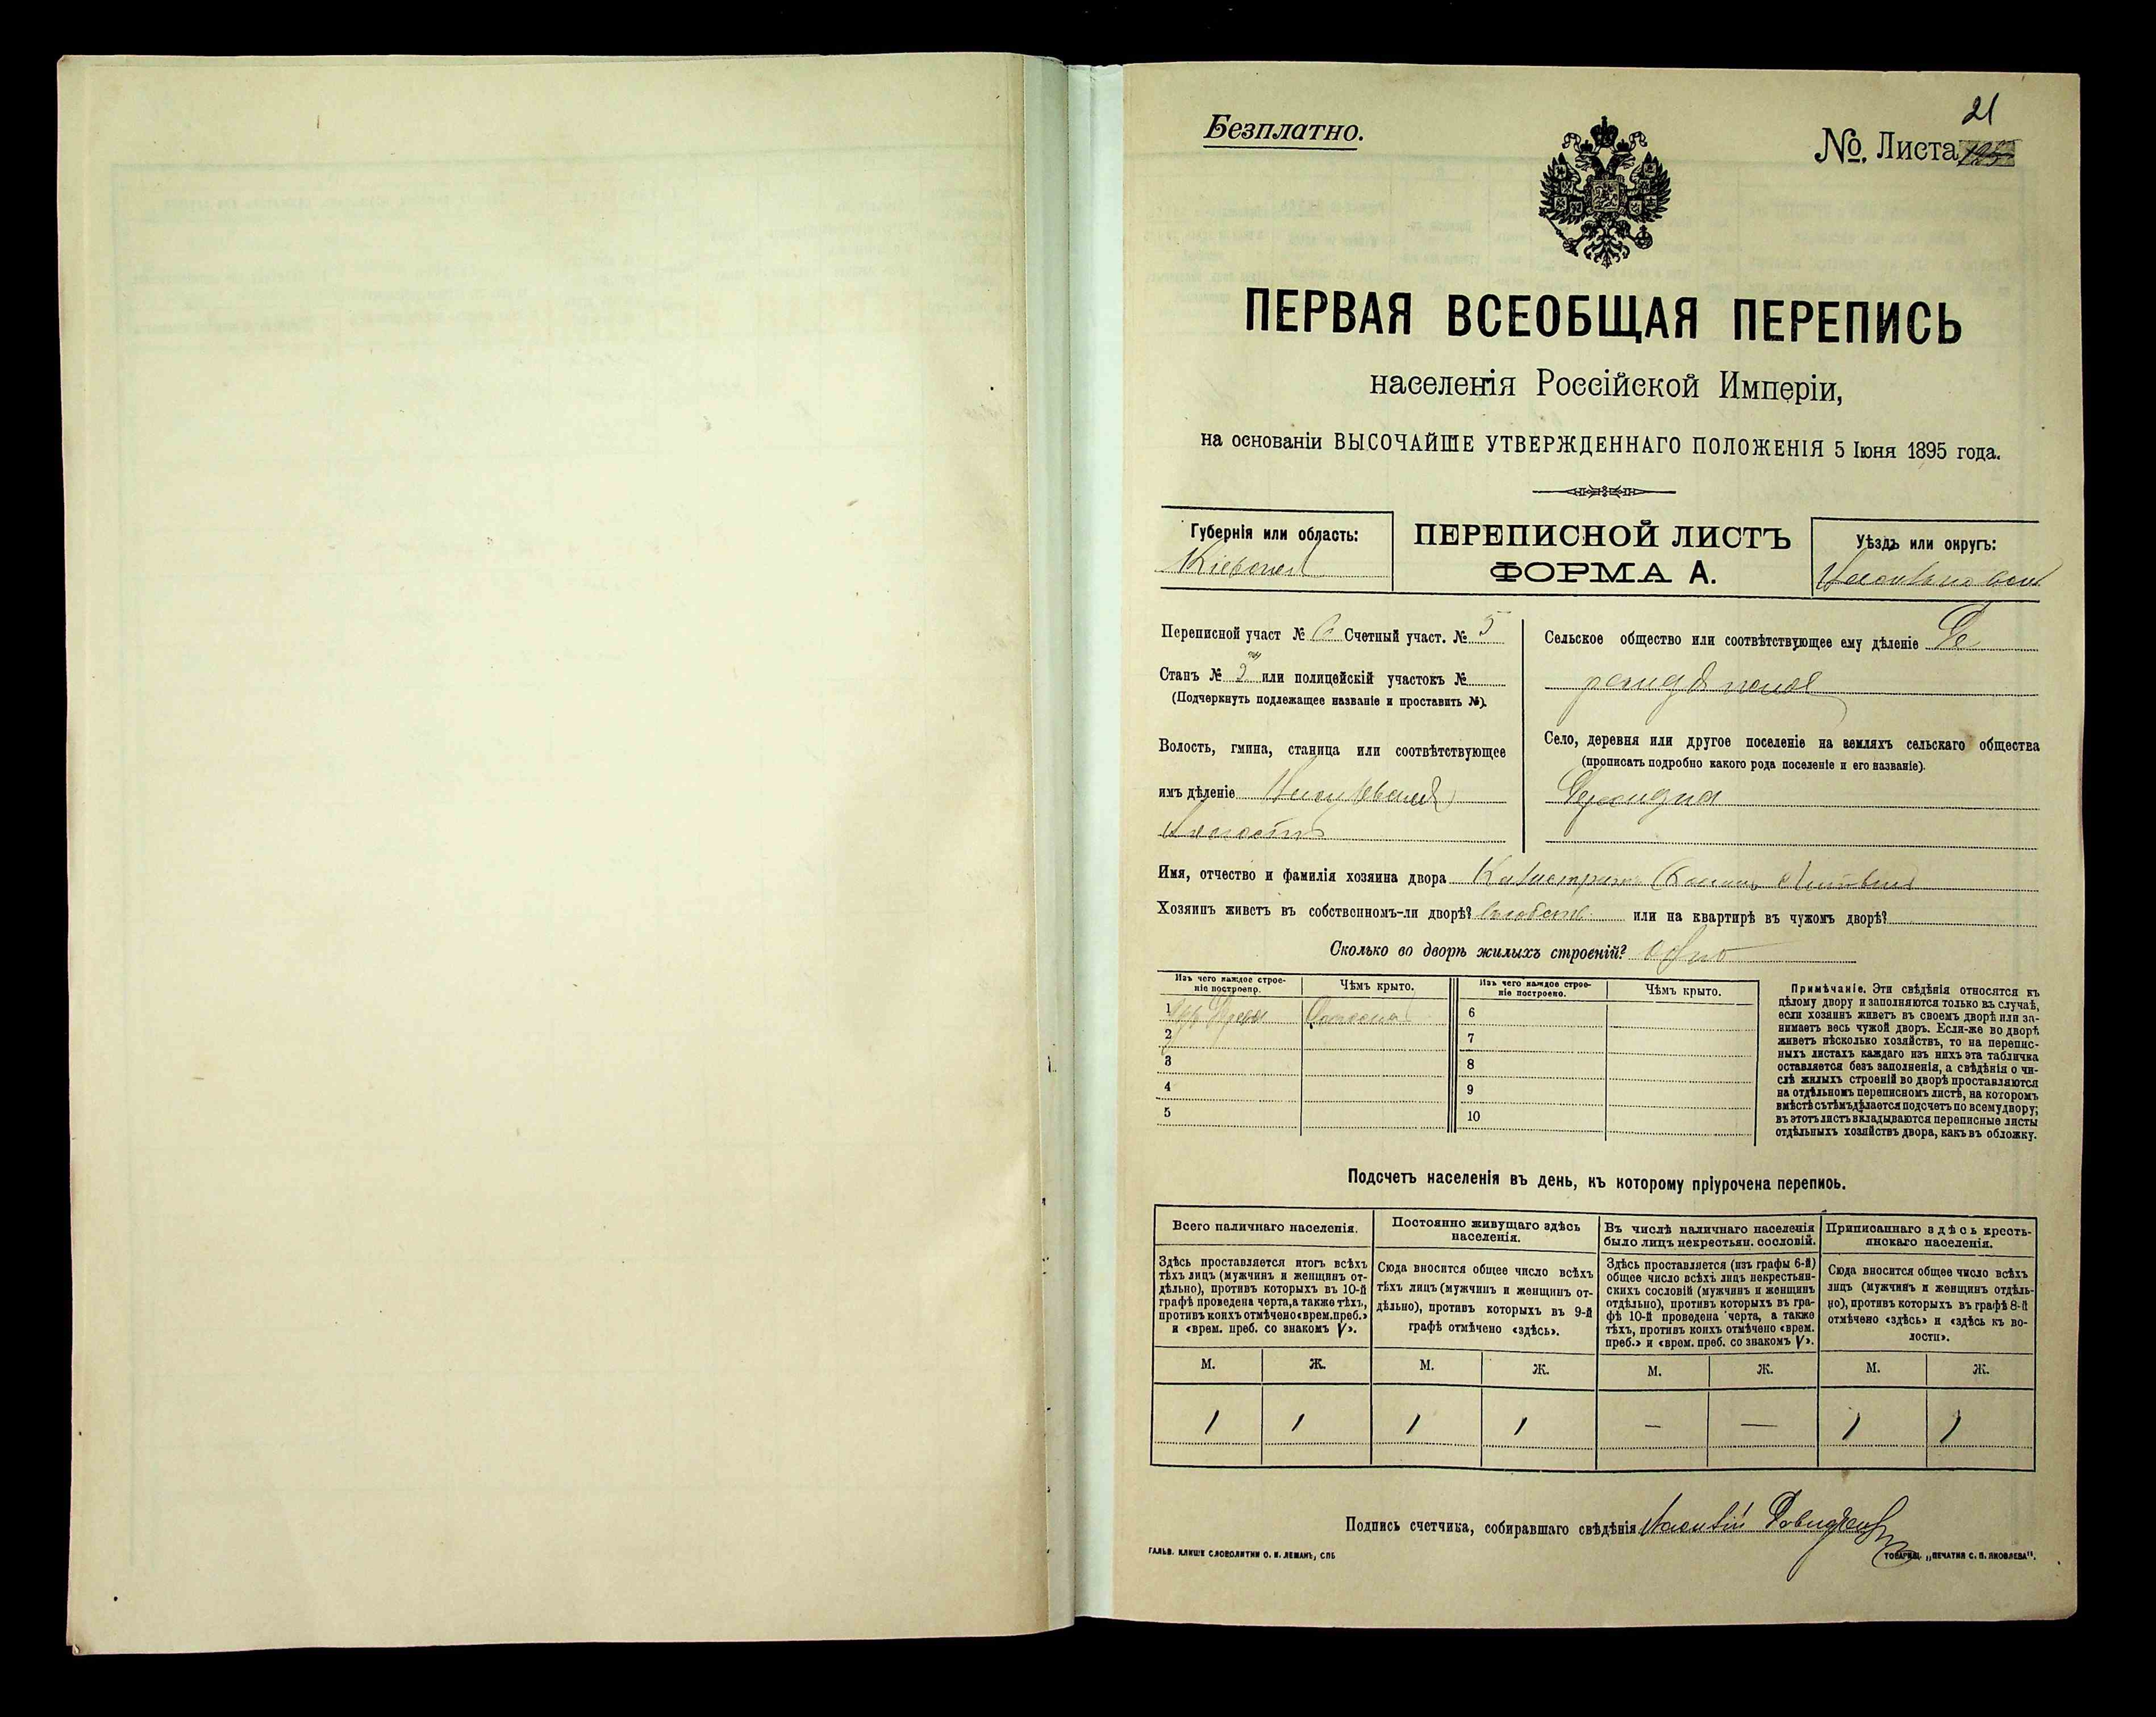 21
Безплатно.
№. Листа
ПЕРВАЯ ВСЕОБЩАЯ ПЕРЕПИСЬ
населенія Россійской Имперіи,
на основаніи ВЫСОЧАЙШЕ УТВЕРЖДЕННАГО ПОЛОЖЕНІЯ 5 Іюня 1895 года.
Губернія или область:
ПЕРЕПИСНОЙ ЛИСТЪ
ФОРМА А.
Уѣздъ или округъ:
Переписной участ № 6 Счетный участ. № 5
Станъ № 2 или полицейскій участокъ №
(Подчеркнуть подлежащее названіе и проставить №).
Волость, гмина, станица или соотвѣтствующее
имъ дѣленіе
Сельское общество или соотвѣтствующее ему дѣленіе
Село, деревня или другое поселеніе на земляхъ сельскаго общества
(прописать подробно какого рода поселеніе и его названіе).
Имя, отчество и фамилія хозяина двора
Хозяинъ живетъ въ собственномъ-ли дворѣ? или на квартирѣ въ чужомъ дворѣ?
Сколько во дворѣ жилыхъ строеній? одно
Изъ чего каждое строе-
ніе построено.
Чѣмъ крыто.
Изъ чего каждое строе-
ніе построено.
Чѣмъ крыто.
1
2
3
4
5
6
7
8
9
10
Примѣчаніе. Эти свѣдѣнія относятся къ
цѣлому двору и заполняются только въ случаѣ,
если хозяинъ живетъ въ своемъ дворѣ или за-
нимаетъ весь чужой дворъ. Если-же во дворѣ
живетъ нѣсколько хозяйствъ, то на перепис-
ныхъ листахъ каждаго изъ нихъ эта табличка
оставляется безъ заполненія, а свѣдѣнія о чи-
слѣ жилыхъ строеній во дворѣ проставляются
на отдѣльномъ переписномъ листѣ, на которомъ
вмѣстѣ съ тѣмъ дѣлается подсчетъ по всему двору;
въ этотъ листъ вкладываются переписные листы
отдѣльныхъ хозяйствъ двора, какъ въ обложку.
Подсчетъ населенія въ день, къ которому пріурочена перепись.
Всего наличнаго населенія.
Здѣсь проставляется итогъ всѣхъ
тѣхъ лицъ (мужчинъ и женщинъ от-
дѣльно), противъ которыхъ въ 10-й
графѣ проведена черта, а также тѣхъ,
противъ коихъ отмѣчено «врем. преб.»
и «врем. преб. со знакомъ V».
Постоянно живущаго здѣсь
населенія.
Сюда вносится общее число всѣхъ
тѣхъ лицъ (мужчинъ и женщинъ от-
дѣльно), противъ которыхъ въ 9-й
графѣ отмѣчено «здѣсь».
Въ числѣ наличнаго населенія
было лицъ некрестьян. сословій.
Здѣсь проставляется (изъ графы 6-й)
общее число всѣхъ лицъ некрестьян-
скихъ сословій (мужчинъ и женщинъ
отдѣльно), противъ которыхъ въ гра-
фѣ 10-й проведена черта, а также
тѣхъ, противъ коихъ отмѣчено «врем.
преб.» и «врем. преб. со знакомъ V».
Приписаннаго здѣсь кресть-
янскаго населенія.
Сюда вносится общее число всѣхъ
лицъ (мужчинъ и женщинъ отдѣль-
но), противъ которыхъ въ графѣ 8-й
отмѣчено «здѣсь» и «здѣсь къ во-
лости».
М. Ж. М. Ж. М. Ж. М. Ж.
1 1 1 1 — — 1 1
Подпись счетчика, собиравшаго свѣдѣнія
ГАЛЬВ. КЛИШЕ СЛОВОЛИТНИ О. И. ЛЕМАНЪ, СПБ
ТОВАРИЩ. „ПЕЧАТНЯ С. П. ЯКОВЛЕВА".